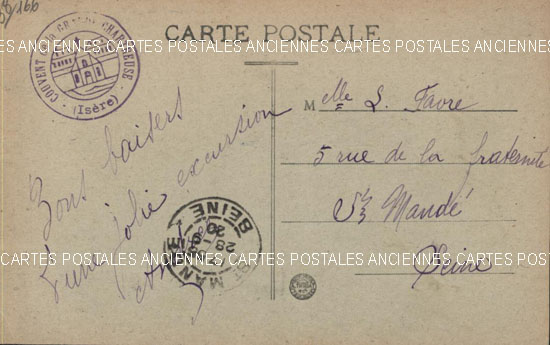 166
CARTE POSTALE
COUVENT DE LA GRANDE CHARTREUSE
(Isère)
CARTES POSTALES ANCIENNES CARTES POSTALES ANCIENNES CARTES POSTALES ANCIENNES
Bons baisers
d'une jolie excursion
Melle L. Favre
5 rue de la fraternité
St Mandé
Seine
ST MANDÉ
28
SEINE
CARTES POSTALES ANCIENNES CARTES POSTALES ANCIENNES CARTES POSTALES ANCIENNES